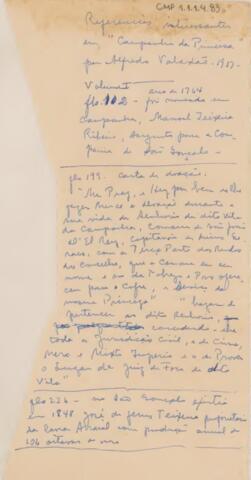 CMP 1.1.1.4.83
Referencias interessantes
em, "Campanha da Princesa
por Alfredo Valadão - 1937 -
Volume I ano de 1764
fls. 112 - foi nomeado em
Campanha, Manoel Teixeira
Ribeiro, Sargento para a Com
panhia de São Gonçalo -
fls 199. carta de doação.
"Me Praz, e Hey por bem
fazer Merce e doação durante a
sua vida do Senhorio da dita Villa
da Campanha, Comarca de São João
d'El Rey, Capitania de Minas Ge
raes, com a Terça Parte das Rendas
do Conselho, que a Camara em ca
cem para o Cofre, a Serviço da
mesma Princeza" "hajam de
pertencer ao dito Senhorio,
concedendo-lhe
toda a Jurisdicção Civil, e do Crime,
Mero e Mixto Imperio e o de Prover
o Lugar de Juiz de Fora da dita
Villa"
fls 226 - no São Gonçalo existia
em 1848 José de Jesus Teixeira proprietario
da lavra com produção annual de
206 oitavas de ouro